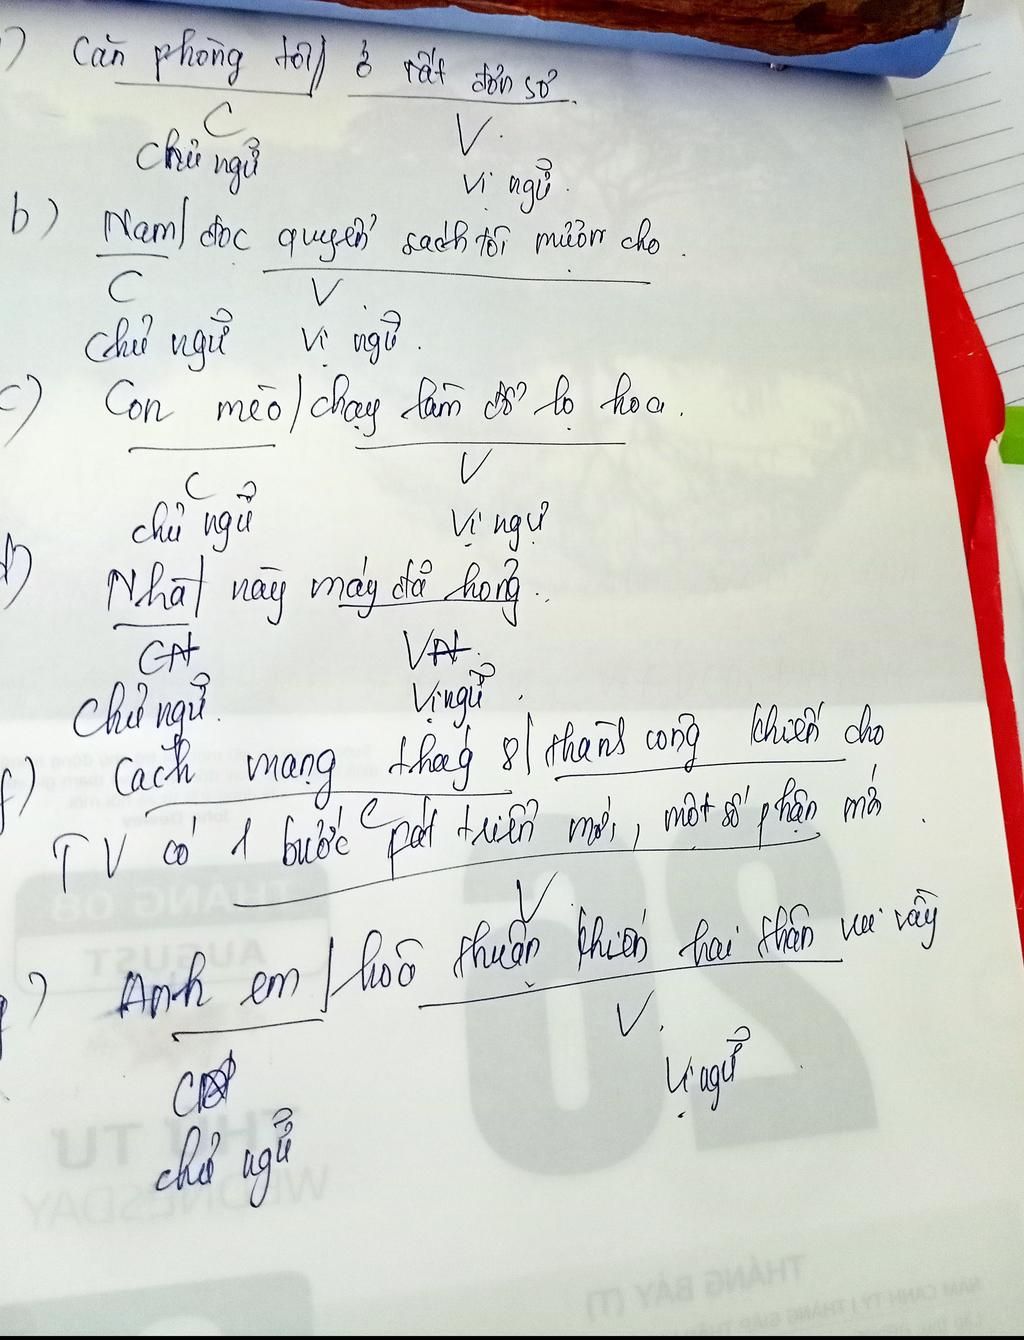 ) Căn phòng tôi / ở rất đơn sơ.
C V.
chủ ngữ vị ngữ.
b) Nam / đọc quyển sách tôi mượn cho.
C V
chủ ngữ vị ngữ.
c) Con mèo / chạy làm đổ lọ hoa.
C V
chủ ngữ vị ngữ
d) Nhà / này máy đã hỏng.
CN VN.
chủ ngữ. vị ngữ.
f) Cách mạng tháng 8 / thành công khiến cho
TV có 1 bước phát triển mới, một số phận mới.
C
V
) Anh em / hoà thuận khiến hai thân vui vầy
V.
vị ngữ
chủ ngữ
20
THÁNG 08
AUGUST
THỨ TƯ
WEDNESDAY
THÁNG BẢY (T)